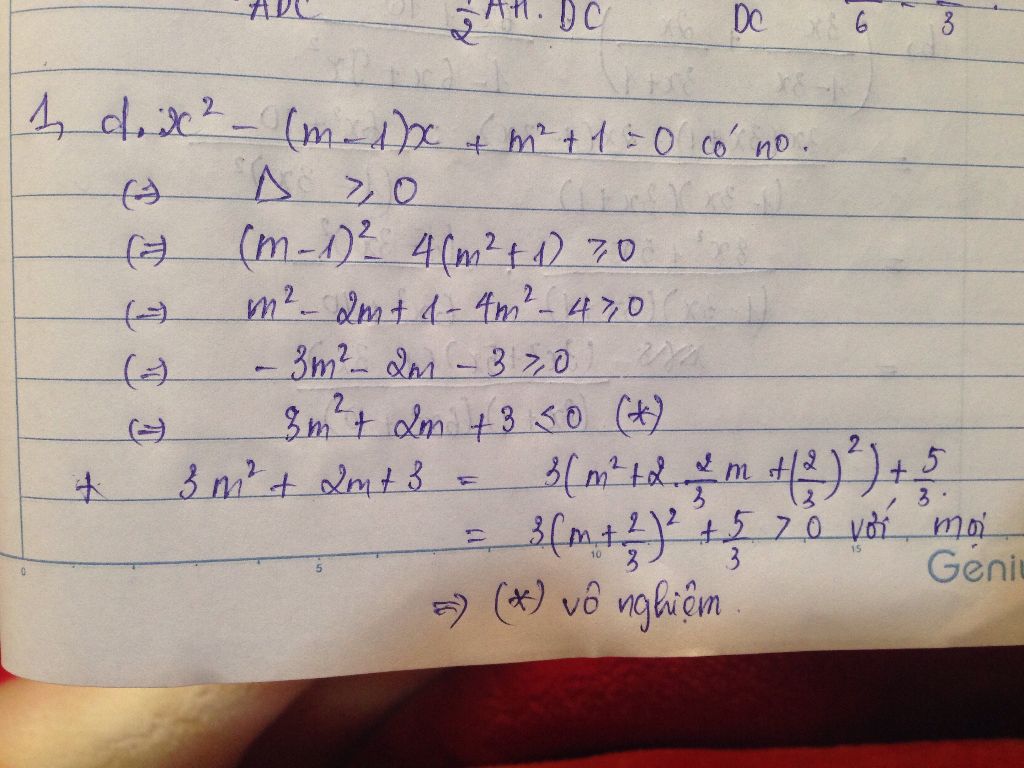 ADC 1/2 AH. DC DC 6 3
1, d. x² - (m-1)x + m² + 1 = 0 có no.
(=) Δ ≥ 0
(=) (m-1)² - 4(m²+1) ≥ 0
(=) m² - 2m + 1 - 4m² - 4 ≥ 0
(=) - 3m² - 2m - 3 ≥ 0
(=) 3m² + 2m + 3 ≤ 0 (*)
+ 3m² + 2m + 3 = 3(m² + 2.2/3 m + (2/3)²) + 5/3.
= 3(m + 2/3)² + 5/3 > 0 với mọi
0 5 10 15
Geniu
=> (*) vô nghiệm.